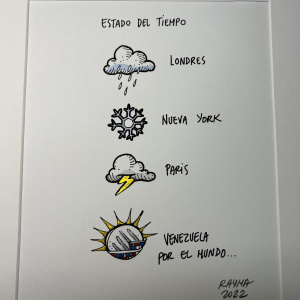 ESTADO DEL TIEMPO
LONDRES
NUEVA YORK
PARIS
VENEZUELA
POR EL MUNDO...
RAYMA
2022